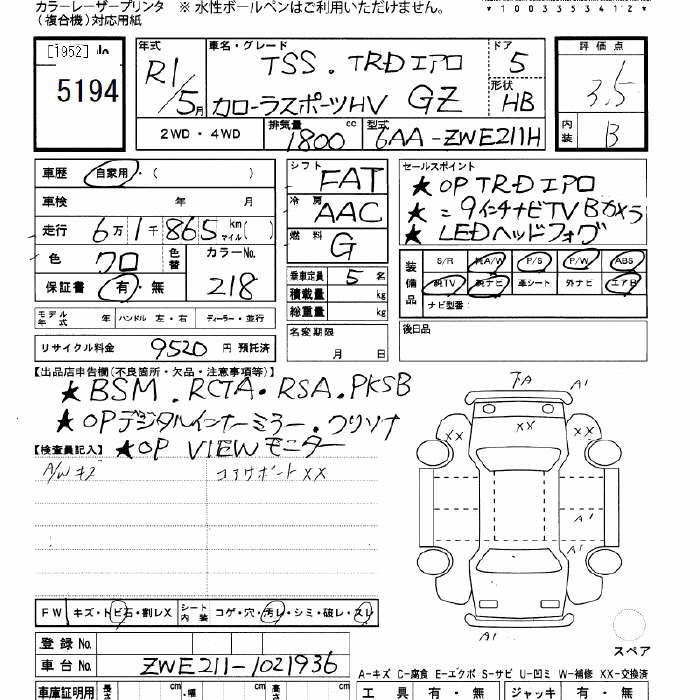 カラーレーザープリンタ ※ 水性ボールペンはご利用いただけません。
(複合機)対応用紙
*1003353412*
[1952]
5194
年式 R1/5月
車名・グレード TSS. TRDエアロ
カローラスポーツHV GZ
ドア 5
形状 HB
2WD・4WD
排気量 1800 cc
型式 6AA-ZWE211H
評価点 3.5
内装 B
車歴 自家用・( )
車検 年 月
走行 6万1千865 km マイル( )
色 クロ 色替 カラーNo. 218
保証書 有・無
シフト FAT
冷房 AAC
燃料 G
乗車定員 5名
積載量 kg
総重量 kg
セールスポイント
★OP TRDエアロ
★=9インチナビTV Bカメラ
★ LEDヘッドフォグ
装備品 S/R 純A/W P/S P/W ABS
純TV 純ナビ 革シート 外ナビ エアB
ナビ型番:
モデル年式 年 ハンドル 左・右 ディーラー・並行
名変期限 月 日
後日品
リサイクル料金 9520 円 預託済
【出品店申告欄(不良箇所・欠品・注意事項等)】
★BSM.RCTA.RSA.PKSB
★OPデジタルインナーミラー・クリソナ
【検査員記入】 ★OP VIEWモニター
A/Wキズ コアサポートXX
7A A1
XX XX XX
A1
A1
A1
スペア
FW キズ・トビ石・割レX シート内装 コゲ・穴・汚レ・シミ・破レ・スレ
登録No.
車台No. ZWE211-1021936
A-キズ C-腐食 E-エクボ S-サビ U-凹ミ W-補修 XX-交換済
車庫証明用 長さ cm ・幅 cm 高さ cm
工具 有・無 ジャッキ 有・無